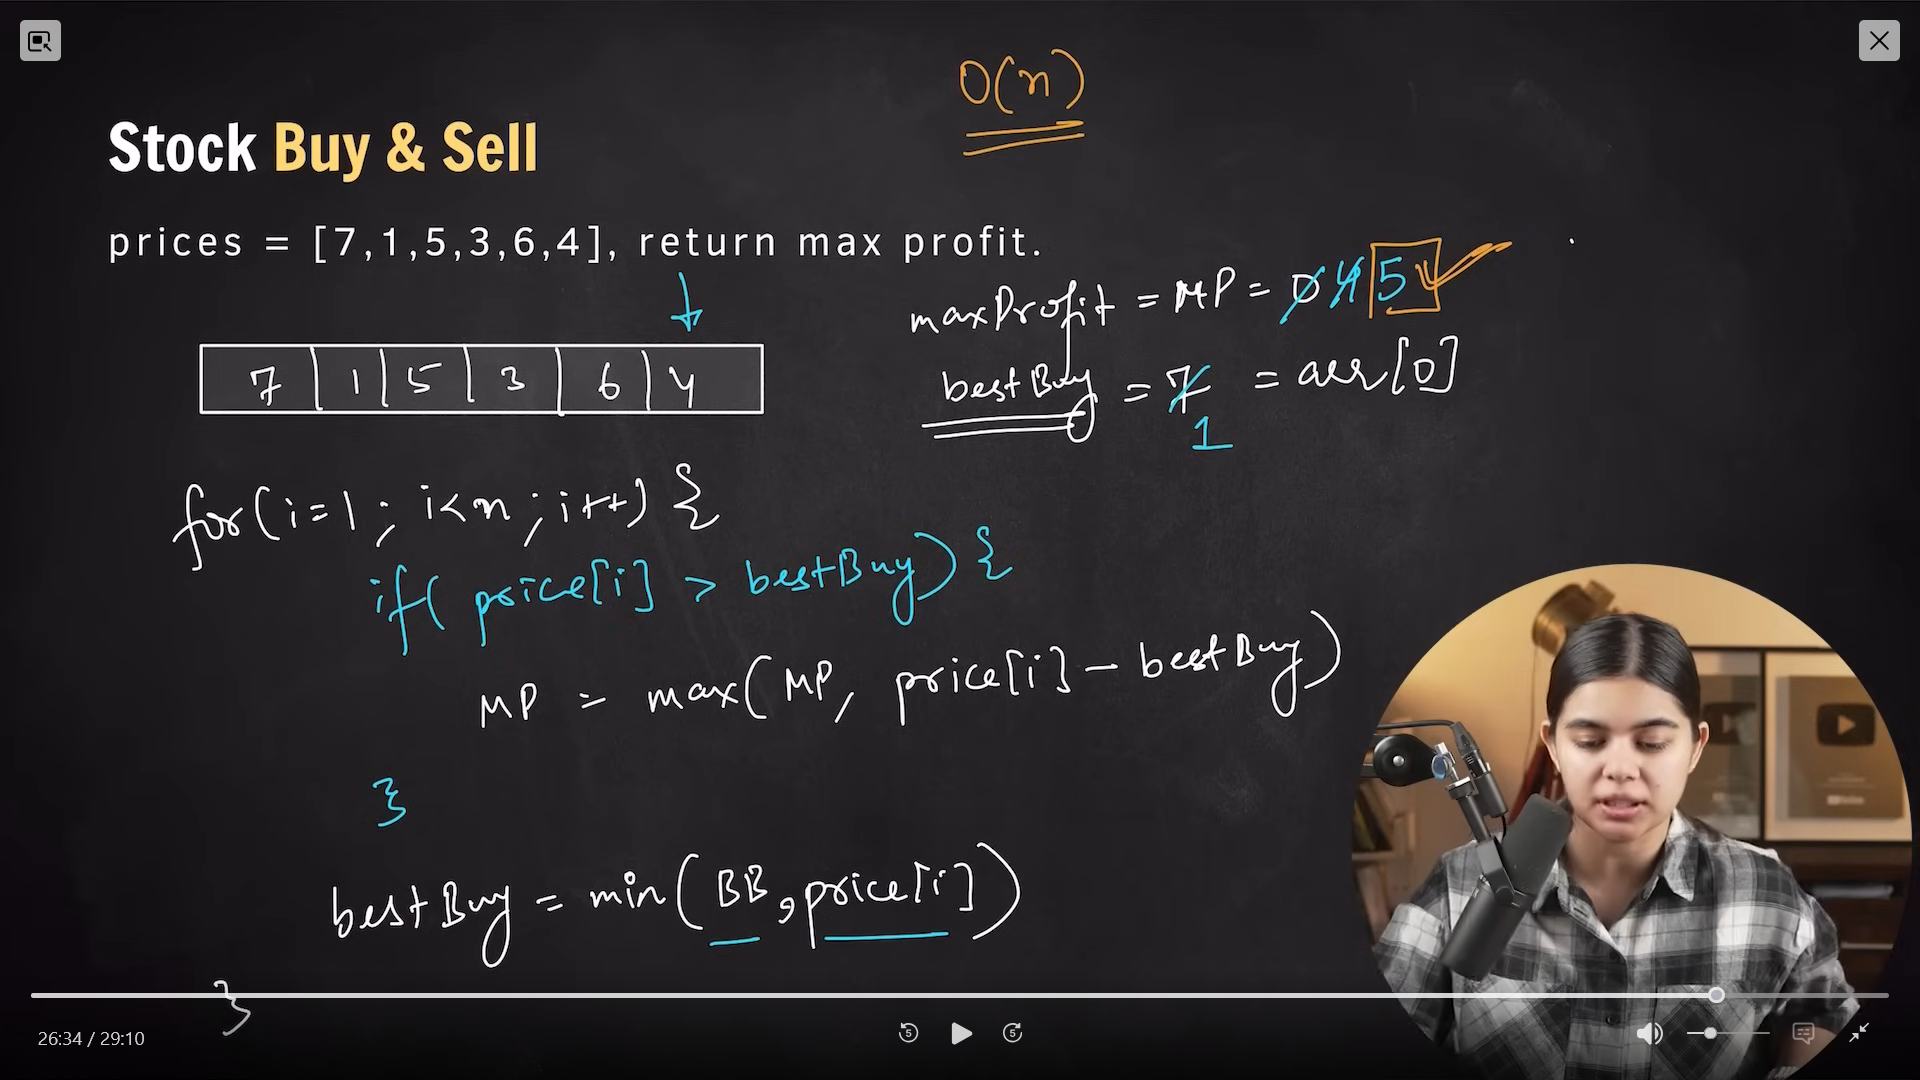 O(n)
Stock Buy & Sell
prices = [7,1,5,3,6,4], return max profit.
maxProfit = MP = 0 4 5
7 | 1 | 5 | 3 | 6 | 4
bestBuy = 7 = arr[0]
1
for(i=1; i<n; i++) {
if( price[i] > bestBuy) {
MP = max(MP, price[i] - bestBuy)
}
bestBuy = min(BB, price[i])
}
26:34 / 29:10
5
5